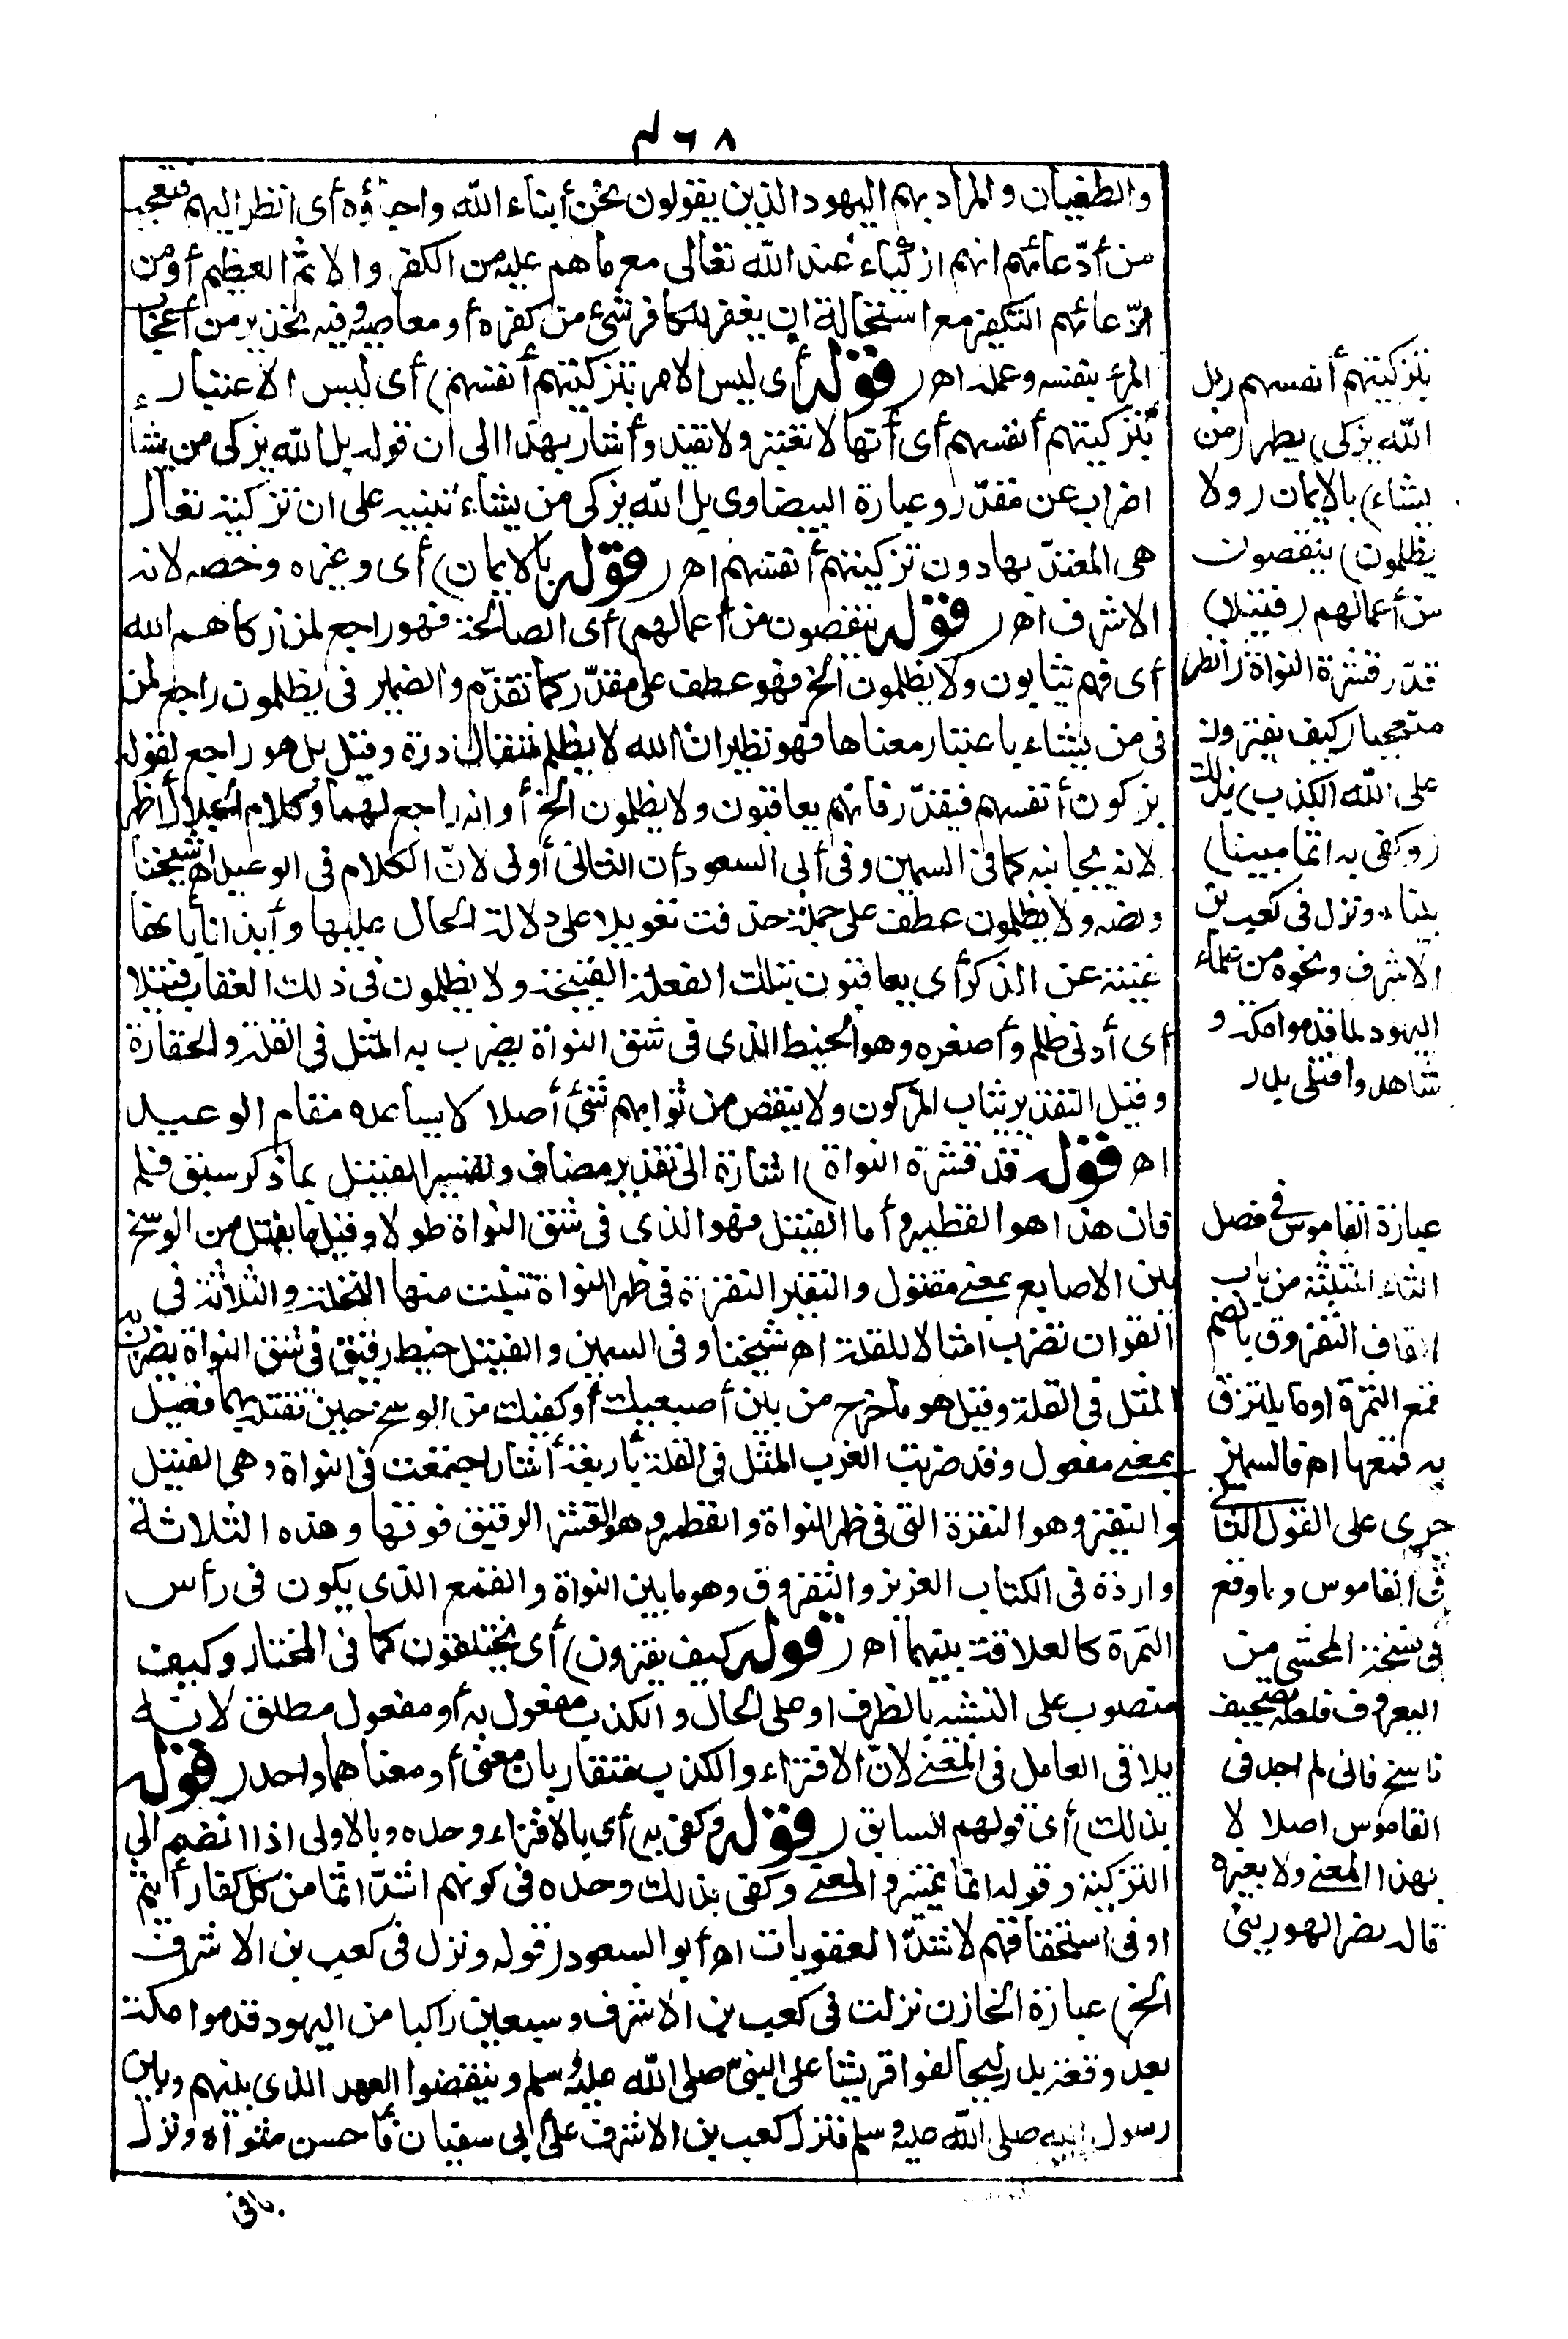 ٤٦٨
والطغيان والمراد بهم اليهود الذين يقولون نحن أبناء الله واحباؤه أى انظر اليهم فتعجب
من أدّعائهم انهم ازكياء عند الله تعالى مع ما هم عليه من الكفر والاثم العظيم أو من
ادّعائهم التكفير مع استحالة ان يغفر للكافر شئ من كفره أو معاصيه وفيه تحذير من أعجاب
المرء بنفسه وعمله اهـ (قوله أى ليس الامر بتزكيتهم أنفسهم) أى ليس الاعتبار
بتزكيتهم أنفسهم أى أنها لا تغنيه ولا تفيد وأشار بهذا الى ان قوله بل الله يزكى من يشاء
اضراب عن مقدّر وعبارة البيضاوى بل الله يزكى من يشاء تنبيه على ان تزكيته تعالى
هى المعتدّ بها دون تزكيتهم أنفسهم اهـ (قوله بالايمان) أى وغيره وخصه لانه
الاشرف اهـ (قوله ينقصون من أعمالهم) أى الصالحة فهو راجع لمن زكاهم الله
أى فهم يثابون ولا يظلمون الخ فهو عطف على مقدّر كما تقدّم والضمير فى يظلمون راجع لمن
فى من يشاء باعتبار معناها فهو نظير ان الله لا يظلم مثقال ذرة وقيل بل هو راجع لقوله
يزكون أنفسهم فيقدّر فانهم يعاقبون ولا يظلمون الخ أو انه راجع لهما وكلام الجلال أظهر
لانه بجانبه كما فى السمين وفى أبى السعود أن الثانى أولى لانّ الكلام فى الوعيد اهـ شيخنا
ونصه ولا يظلمون عطف على جملة حذفت تعويلا على دلالة الحال عليها وأيذانا بأنها
غنية عن الذكر أى يعاقبون بتلك الفعلة القبيحة ولا يظلمون فى ذلك العقاب فتيلا
أى أدنى ظلم وأصغره وهو الخيط الذى فى شق النواة يضرب به المثل فى القلة والحقارة
وقيل التقدير يثاب المزكون ولا ينقص من ثوابهم شئ أصلا لا يساعده مقام الوعيد
اهـ (قوله قدر قشرة النواة) اشارة الى تقدير مضاف وتفسير الفتيل بما ذكر سبق قلم
فان هذا هو القطمير وأما الفتيل فهو الذى فى شق النواة طولا وقيل ما يفتل من الوسخ
بين الاصابع بمعنى مفتول والنقير النقرة فى ظهر النواة تنبت منها النخلة والثلاثة فى
القرآن تضرب امثالا للقلة اهـ شيخنا وفى السمين والفتيل خيط رقيق فى شق النواة يضرب به
المثل فى القلة وقيل هو ما خرج من بين أصبعيك أو كفيك من الوسخ حين تفتلهما فعيل
بمعنى مفعول وقد ضربت العرب المثل فى القلة بأربعة أشياء اجتمعت فى النواة وهى الفتيل
والنقير وهو النقرة التى فى ظهر النواة والقطمير وهو القشر الرقيق فوقها وهذه الثلاثة
واردة فى الكتاب العزيز والثفروق وهو ما بين النواة والقمع الذى يكون فى رأس
التمرة كالعلاقة بينهما اهـ (قوله كيف يفترون) أى يختلقون كما فى المختار وكيف
منصوب على التشبه بالظرف او على الحال والكذب مفعول به أو مفعول مطلق لانه
يلاقى العامل فى المعنى لانّ الافتراء والكذب متقاربان معنى أو معناهما واحد (قوله
بذلك) أى قولهم السابق (قوله وكفى به) أى بالافتراء وحده وبالاولى اذا انضم الى
التزكية وقوله اثما تمييز والمعنى وكفى بذلك وحده فى كونهم اشدّ اثما من كل كفار أثيم
او فى استحقاقهم لاشدّ العقوبات اهـ أبو السعود (قوله ونزل فى كعب بن الاشرف
الخ) عبارة الخازن نزلت فى كعب بن الاشرف وسبعين راكبا من اليهود قدموا مكة
بعد وقعة بدر ليحالفوا قريشا على النبىّ صلى الله عليه وسلم وينقضوا العهد الذى بينهم وبين
رسول الله صلى الله عليه وسلم فنزل كعب بن الاشرف على أبى سفيان فأحسن مثواه ونزل
باقى
بتزكيتهم أنفسهم (بل
الله يزكى) يطهر (من
يشاء) بالايمان (ولا
يظلمون) ينقصون
من أعمالهم (فتيلا)
قدر قشرة النواة (انظر)
متعجبا (كيف يفترون
على الله الكذب) بذلك
(وكفى به اثما مبينا)
بينا، ونزل فى كعب بن
الاشرف ونحوه من علماء
اليهود لما قدموا مكة و
شاهدوا قتلى بدر
عبارة القاموس فى فصل
الثاء المثلثة من باب
القاف الثفروق بالضم
قمع التمرة او ما يلتزق
به قمعها اهـ فالسمين
جرى على القول الثانى
فى القاموس وما وقع
فى نسخة المحشى من
اليعروف فلعله تصحيف
ناسخ فانى لم اجد فى
القاموس اصلا لا
بهذا المعنى ولا بغيره
قاله نصر الهورينى